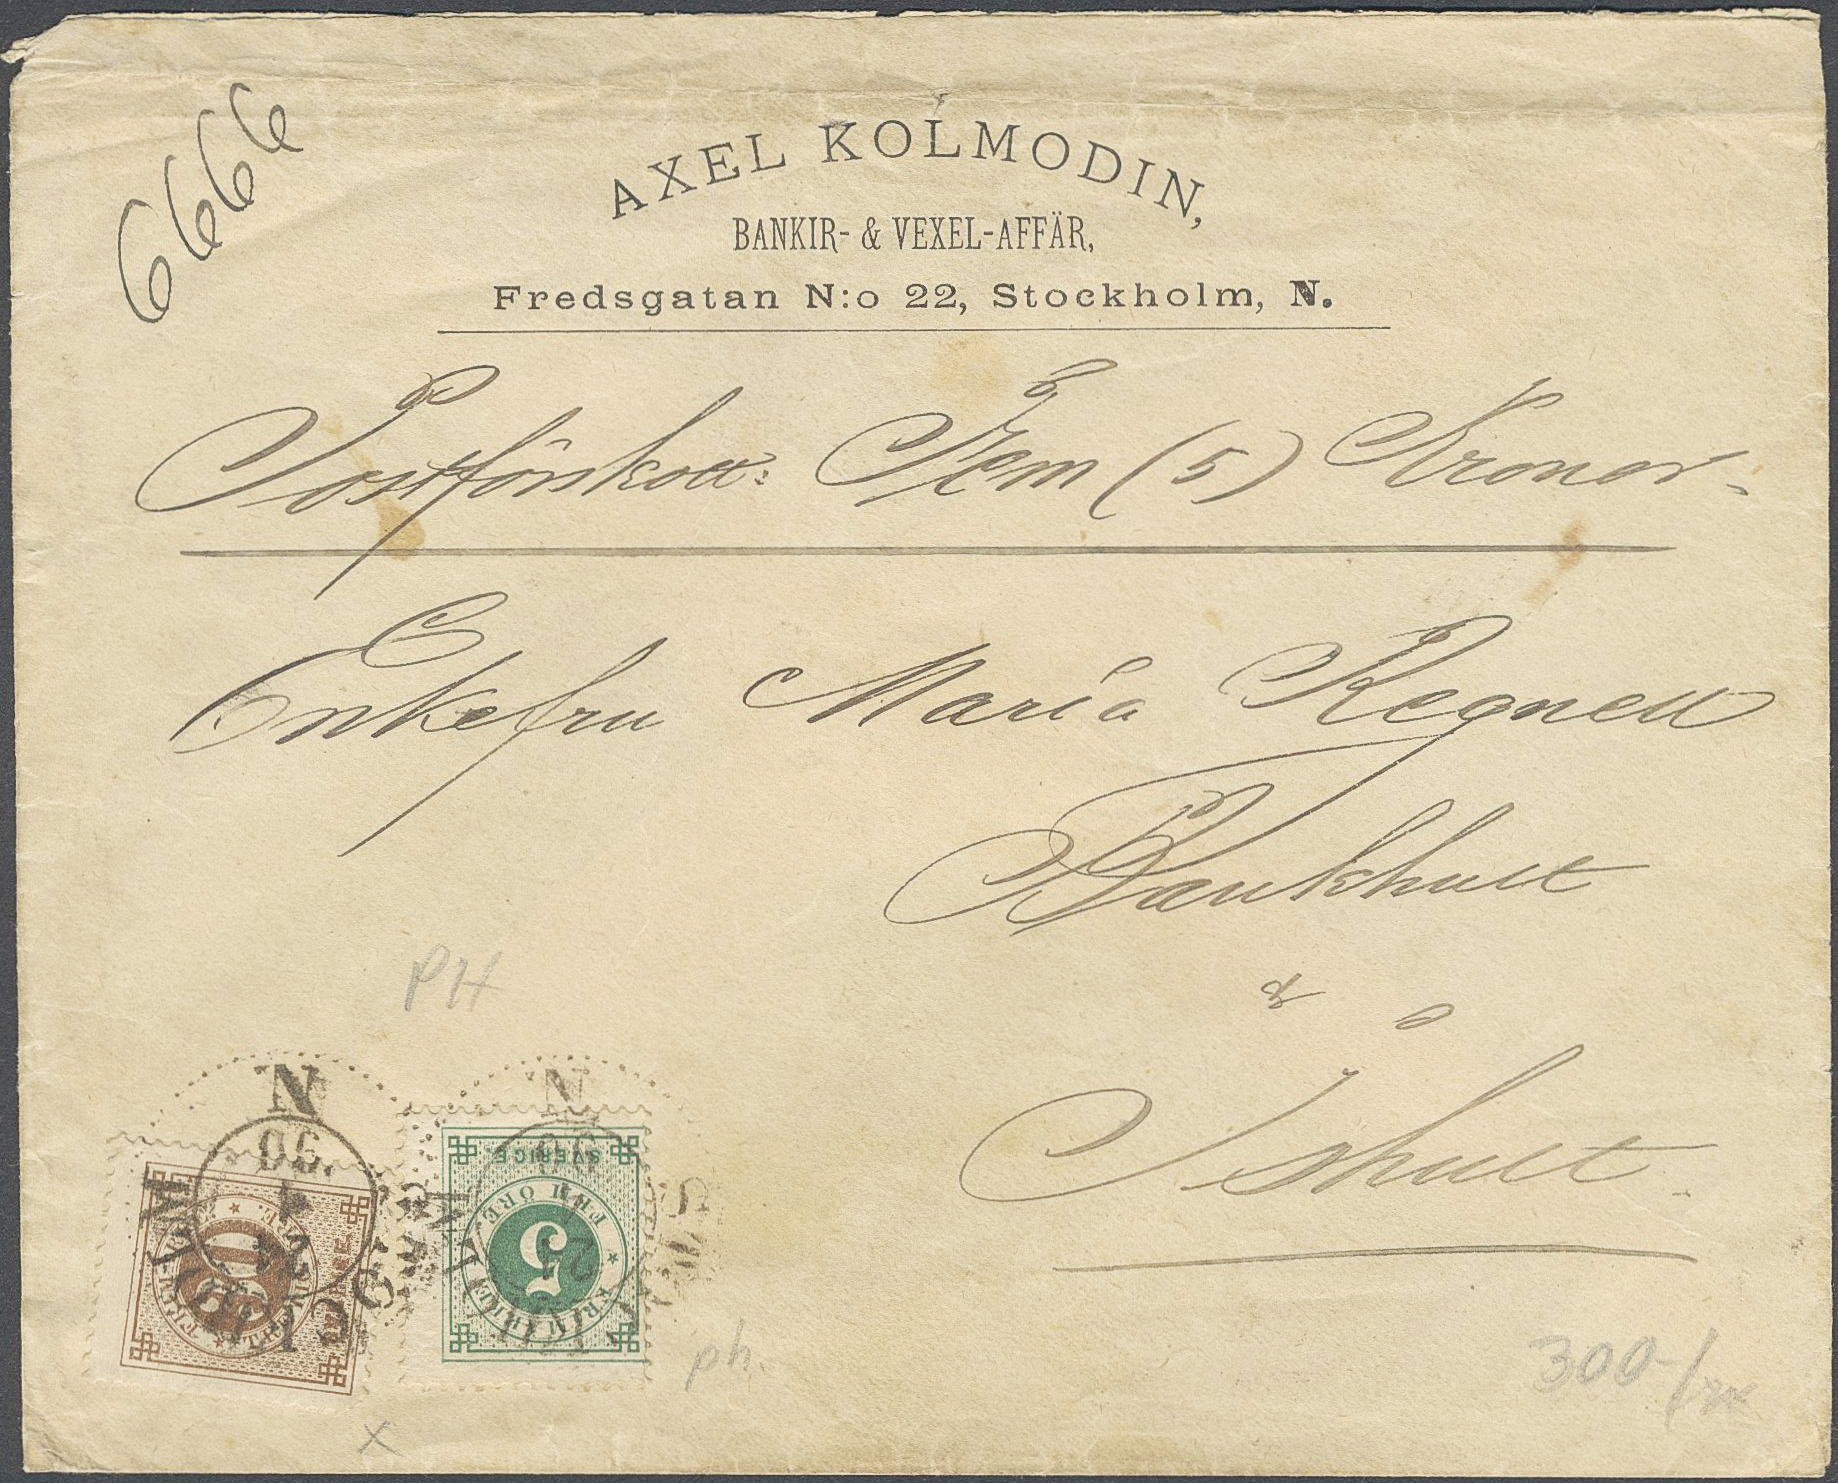 6666
AXEL KOLMODIN,
BANKIR- & VEXEL-AFFÄR,
Fredsgatan N:o 22, Stockholm, N.
Postförskott: Fem (5) Kronor
Enkefru Maria Regnell
Bankhult
p e
Ishult.
PH
N
N
SVERIGE.
FEM ÖRE.
5
ph.
300-/
x